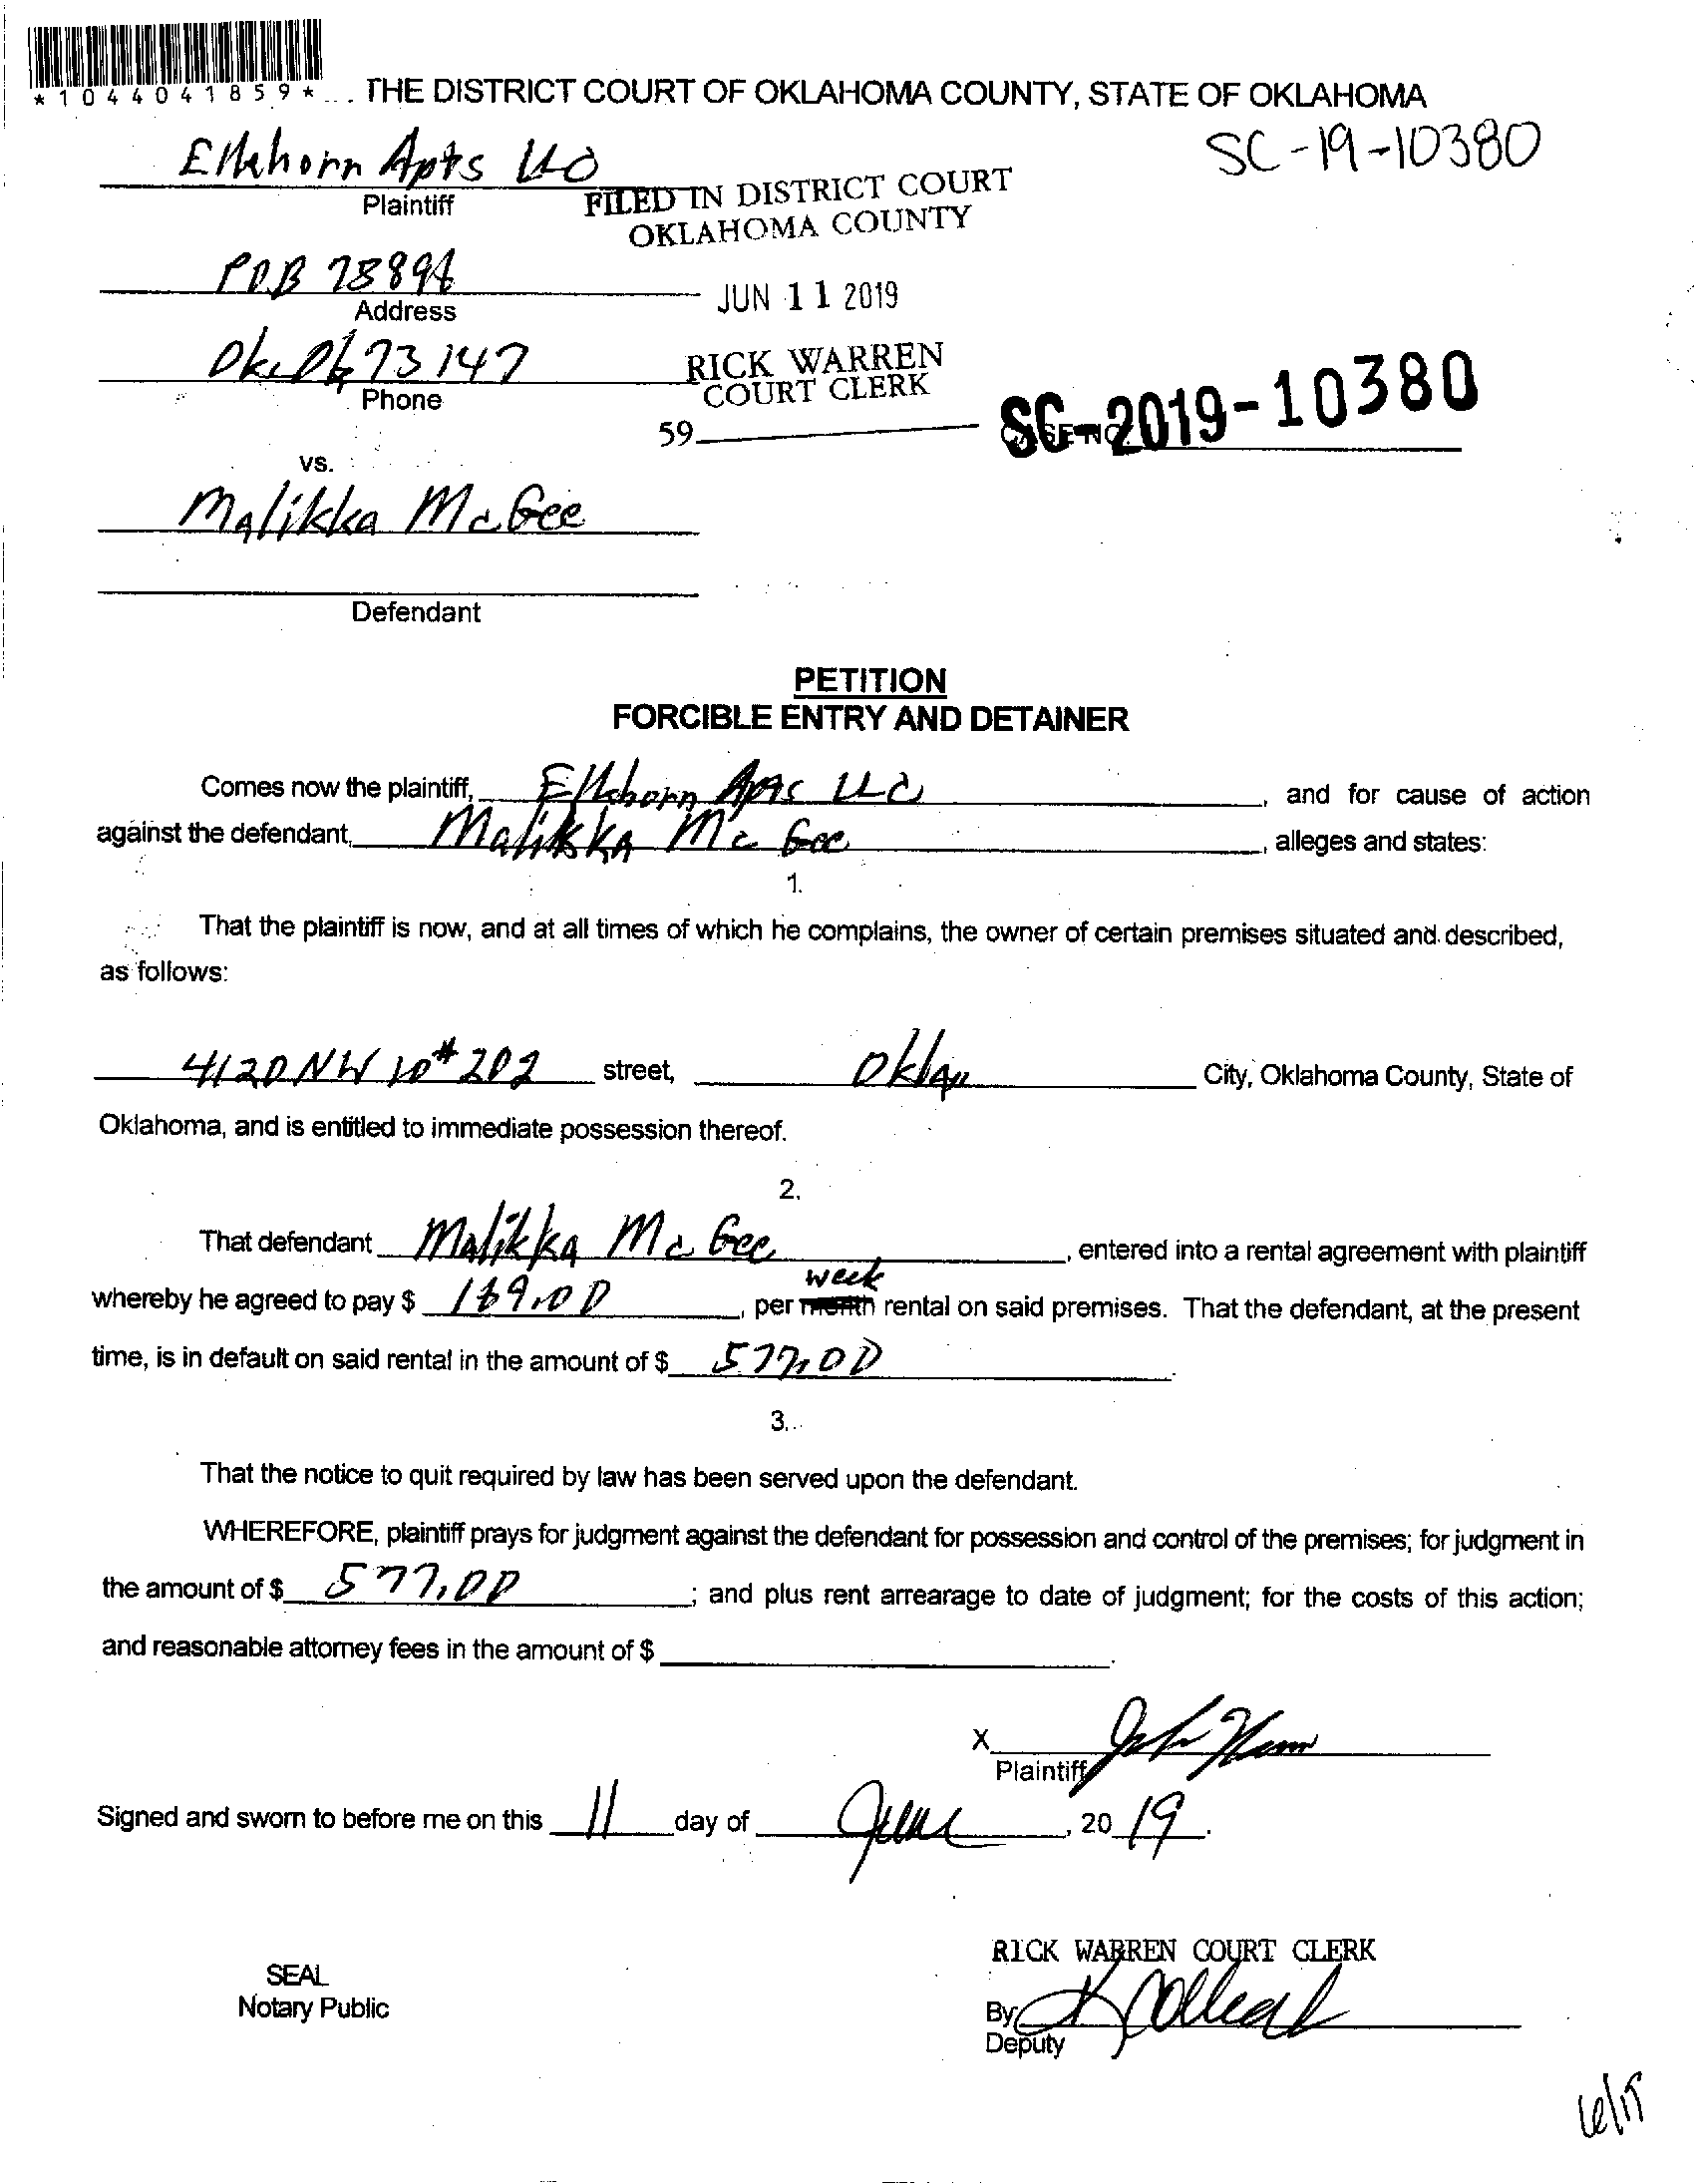 *1044041859*
THE DISTRICT COURT OF OKLAHOMA COUNTY, STATE OF OKLAHOMA
SC-19-10380
Elkhorn Apts LLC
Plaintiff
FILED IN DISTRICT COURT
OKLAHOMA COUNTY
POB 78894
Address
JUN 11 2019
Ok. Ok 73147
Phone
RICK WARREN
COURT CLERK
59
SC-2019-10380
vs.
Malikka McGee
Defendant
PETITION
FORCIBLE ENTRY AND DETAINER
Comes now the plaintiff, Elkhorn Apts LLC, and for cause of action
against the defendant, Malikka McGee, alleges and states:
1.
That the plaintiff is now, and at all times of which he complains, the owner of certain premises situated and described,
as follows:
4120 NW 10 # 202 street, City, Oklahoma County, State of
Oklahoma, and is entitled to immediate possession thereof.
2.
That defendant Malikka McGee, entered into a rental agreement with plaintiff
week
whereby he agreed to pay $ 169.00, per month rental on said premises. That the defendant, at the present
time, is in default on said rental in the amount of $ 577.00.
3.
That the notice to quit required by law has been served upon the defendant.
WHEREFORE, plaintiff prays for judgment against the defendant for possession and control of the premises; for judgment in
the amount of $ 577.00; and plus rent arrearage to date of judgment; for the costs of this action;
and reasonable attorney fees in the amount of $
X
Plaintiff
Signed and sworn to before me on this 11 day of June, 20 19.
RICK WARREN COURT CLERK
SEAL
Notary Public
By
Deputy